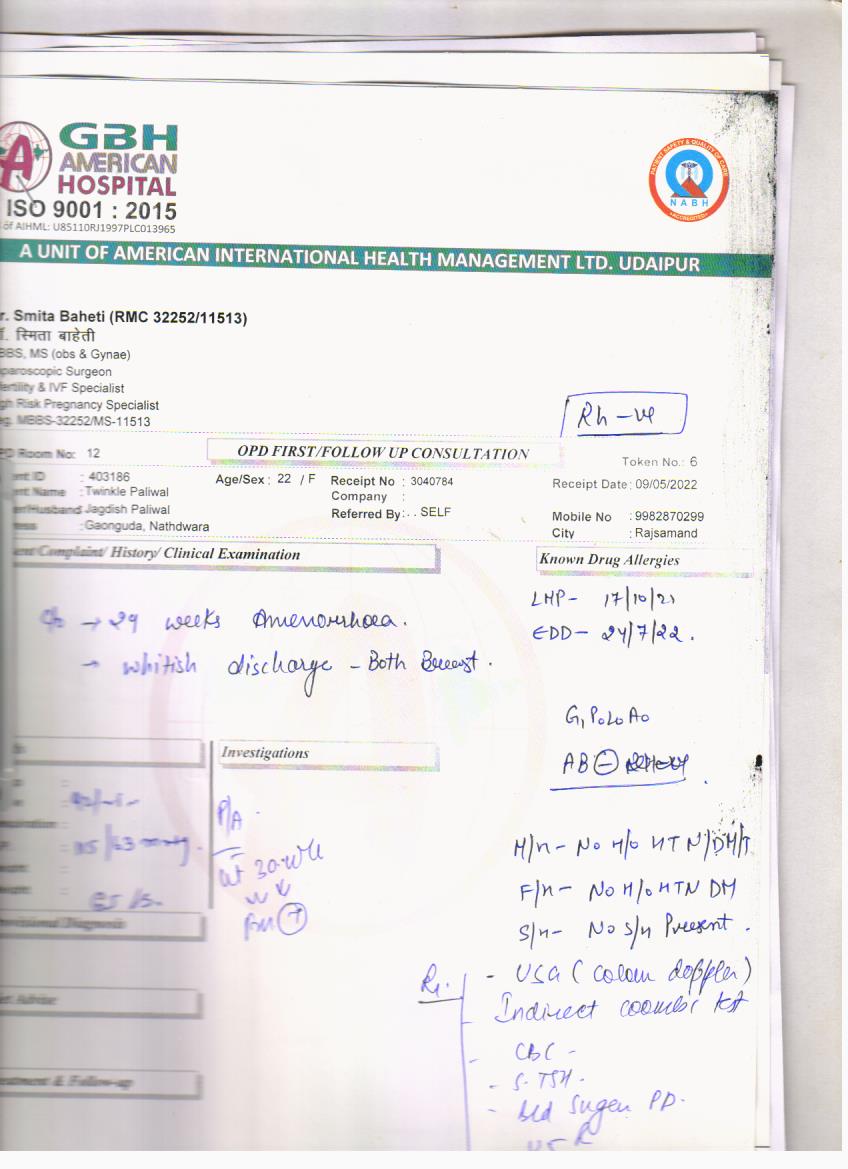 GBH
AMERICAN
HOSPITAL
A
ISO 9001 : 2015
of AIHML: U85110RJ1997PLC013965
PATIENT SAFETY & QUALITY OF CARE
NABH
ACCREDITED
A UNIT OF AMERICAN INTERNATIONAL HEALTH MANAGEMENT LTD. UDAIPUR
r. Smita Baheti (RMC 32252/11513)
स्मिता बाहेती
BBS, MS (obs & Gynae)
paroscopic Surgeon
fertility & IVF Specialist
gh Risk Pregnancy Specialist
eg. MBBS-32252/MS-11513
Rh -ve
PD Room No: 12
OPD FIRST/FOLLOW UP CONSULTATION
Token No.: 6
ent ID : 403186
Age/Sex : 22 / F
Receipt No : 3040784
Receipt Date : 09/05/2022
ent Name : Twinkle Paliwal
Company :
er/Husband : Jagdish Paliwal
Referred By : . . SELF
Mobile No : 9982870299
ess : Gaonguda, Nathdwara
City : Rajsamand
ent Complaint/ History/ Clinical Examination
Known Drug Allergies
LMP - 17/10/21
EDD - 24/7/22.
c/o → 29 weeks Amenorrhoea.
→ whitish discharge - Both Breast.
G1P0L0A0
Investigations
AB ⊖
P/A
115/63 mmHg.
M/H - No H/O HTN/DM/T
F/H - No H/O HTN DM
S/H - No S/H Present.
ovisional Diagnosis
Rx.
- USG (colour doppler)
- Indirect coombs test
et Advise
- CBC -
- S. TSH.
eatment & Follow-up
- Bld Sugar PP.